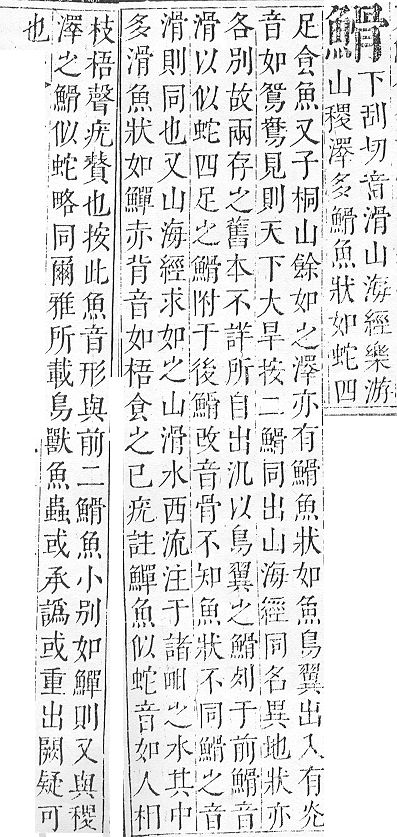 䱻
下刮切音滑山海經樂游
山稷澤多䱻魚狀如蛇四
足食魚又子桐山餘如之澤亦有䱻魚狀如魚鳥翼出入有灮
音如鴛鴦見則天下大旱按二䱻同出山海經同名異地狀亦
各別故兩存之舊本不詳所自出汎以鳥翼之䱻列于前䱻音
滑以似蛇四足之䱻附于後䱻改音骨不知魚狀不同䱻之音
滑則同也又山海經求如之山滑水西流注于諸毗之水其中
多滑魚狀如鱓赤背音如梧食之已疣註鱓魚似蛇音如人相
枝梧聲疣贅也按此魚音形與前二䱻魚小別如鱓則又與稷
澤之䱻似蛇略同爾雅所載鳥獸魚蟲或承譌或重出闕疑可
也